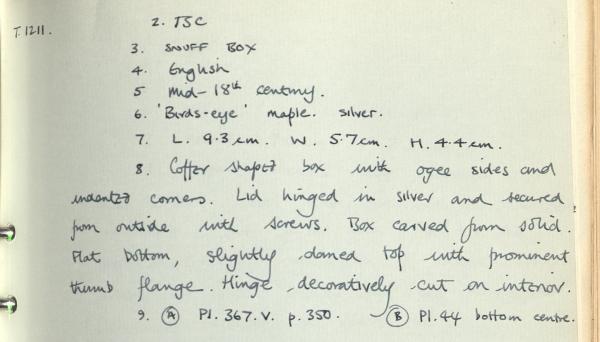 T.1211.
2. TSC
3. SNUFF BOX
4. English
5 Mid-18th century.
6. 'Birds-eye' maple. silver.
7. L. 9.3 cm. W. 5.7 cm. H. 4.4 cm.
8. Coffer shaped box with ogee sides and
indented corners. Lid hinged in silver and secured
from outside with screws. Box carved from solid.
Flat bottom, slightly domed top with prominent
thumb flange. Hinge decoratively cut on interior.
9. (A) Pl. 367.V. p.350. (B) Pl.44 bottom centre.